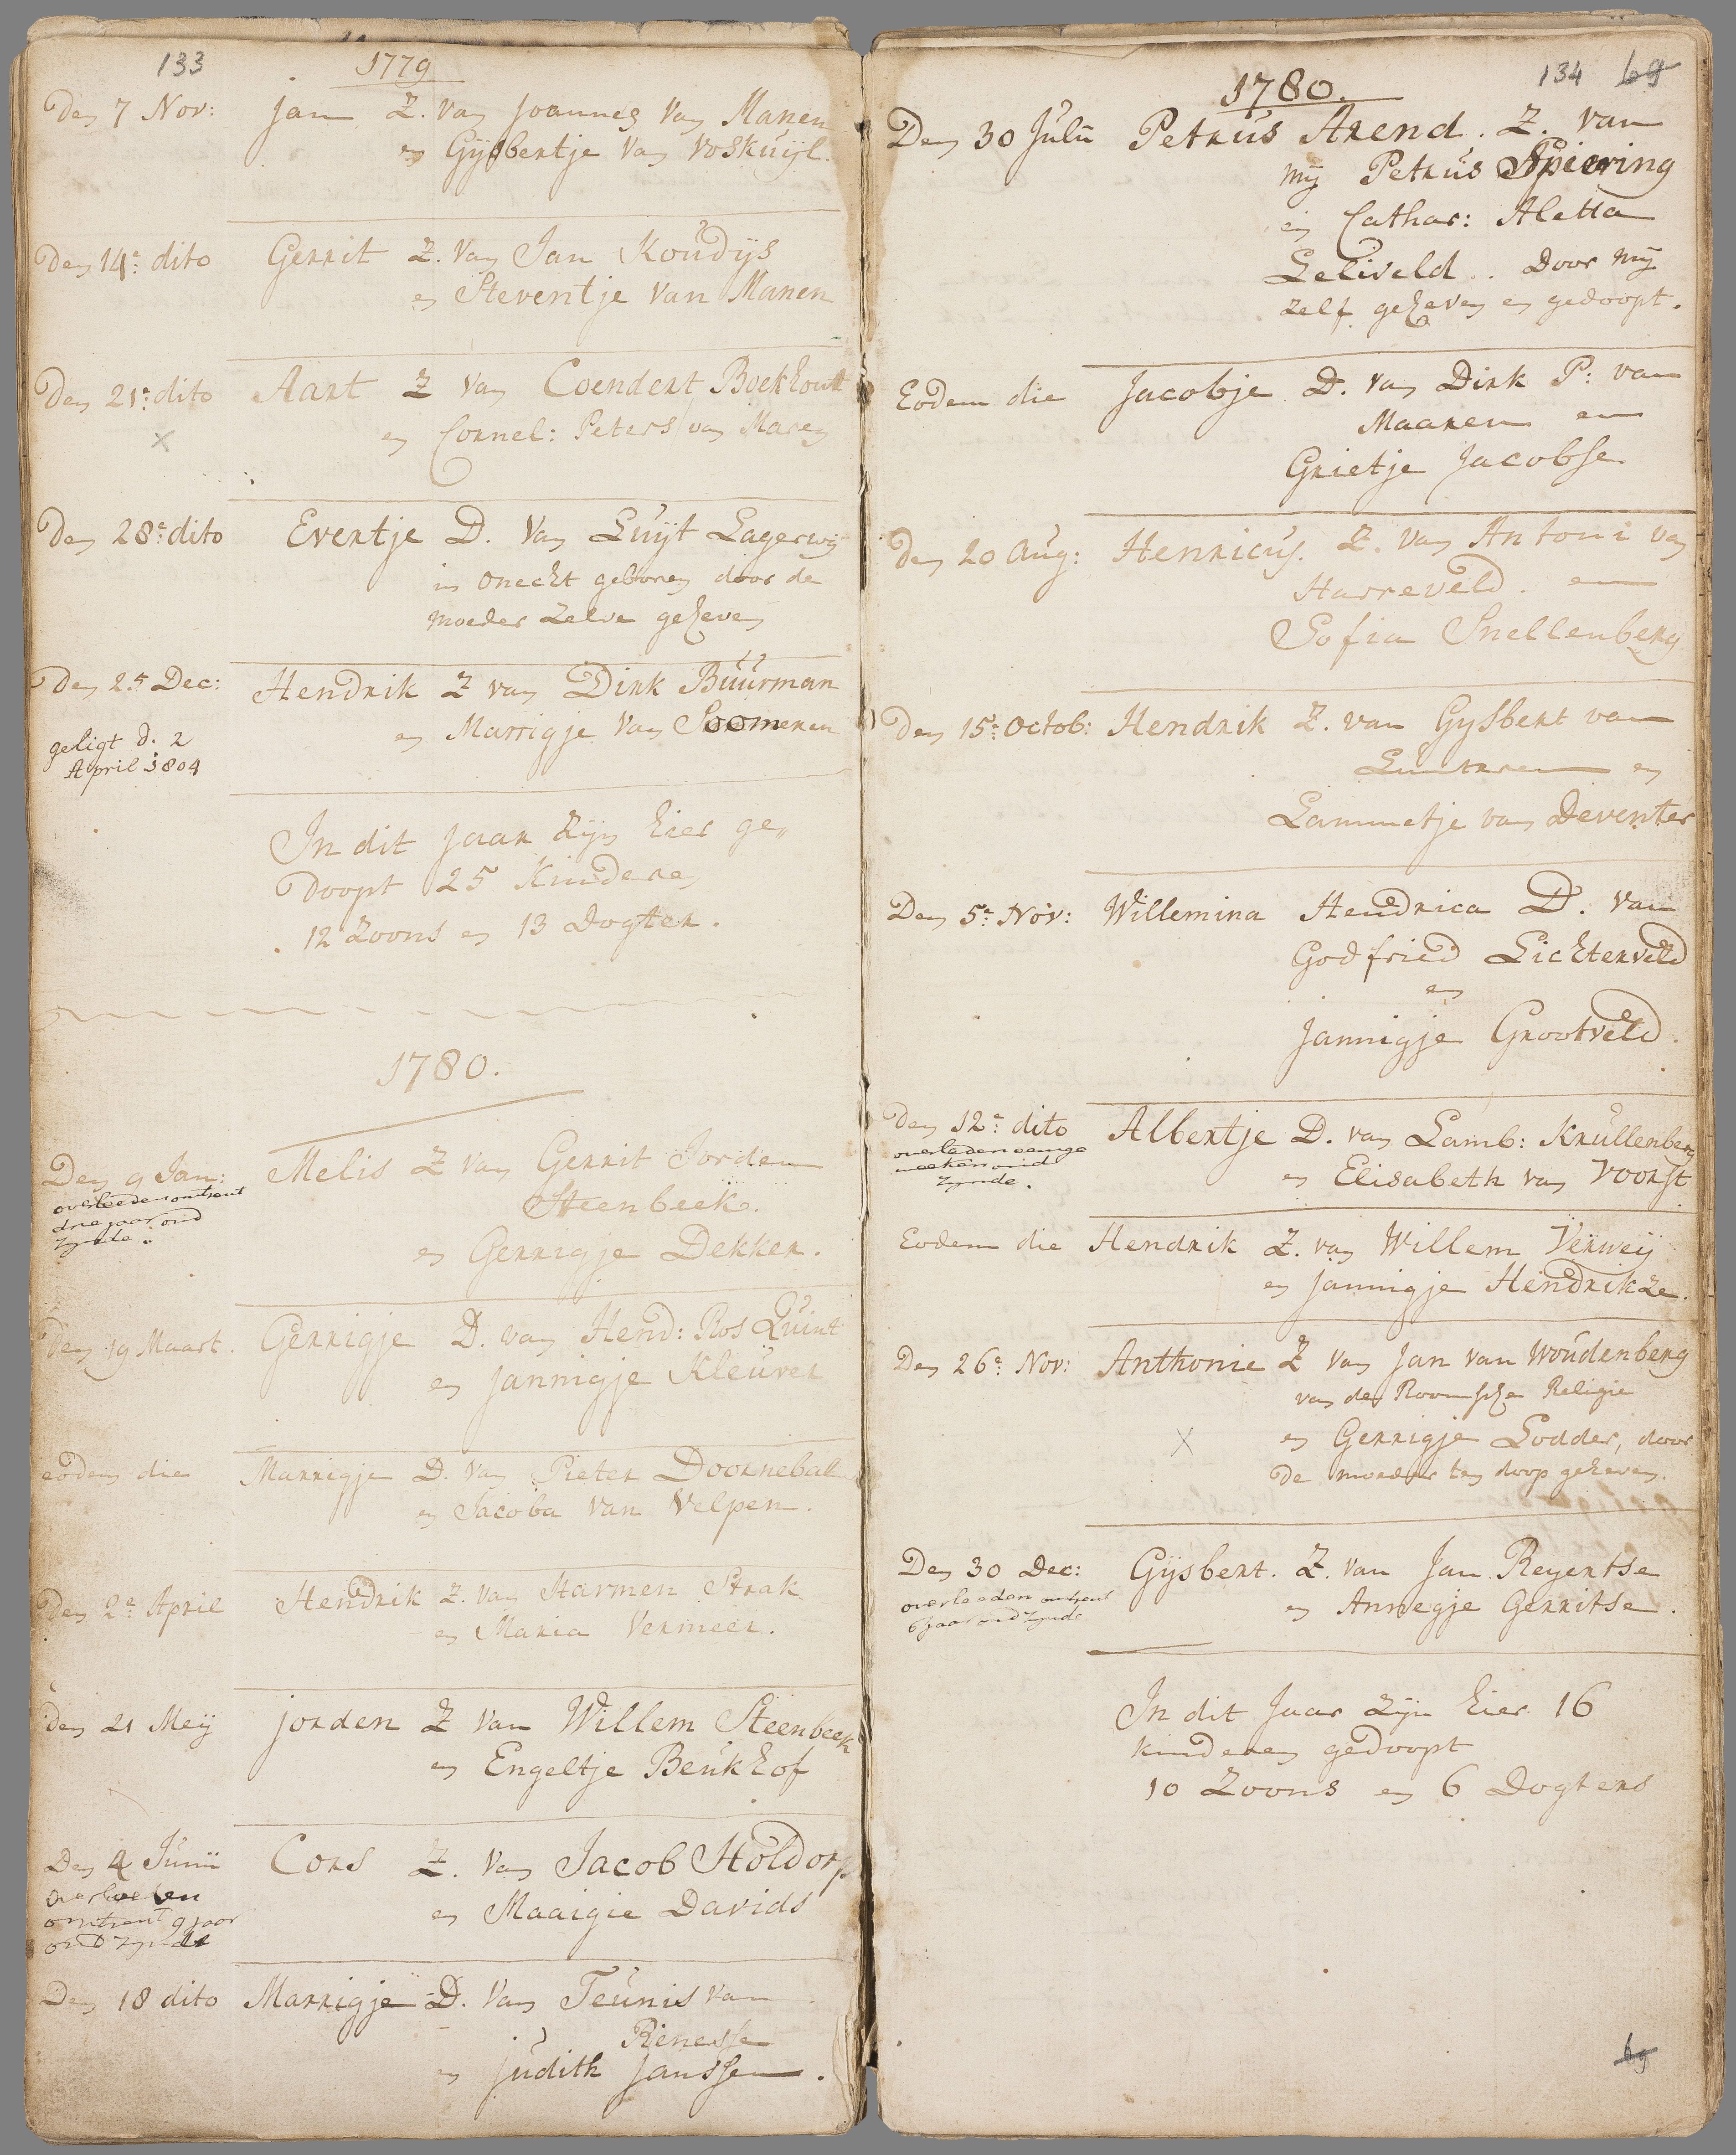 133
1779
Den 7 Nov: Jan Z. van Joannes van Manen
en Gysbertje van Voskuijl.
Den 14e dito Gerrit Z. van Jan Koudijs
en Steventje van Manen
Den 21e dito Aart Z van Coendert Boekhout
en Cornel: Peters van Maren
Den 28e dito Evertje D. van Luijt Lagerwij
in onecht geboren door de
moeder zelve geheven
Den 25 Dec: Hendrik Z van Dirk Büürman
en Marrigje van Soomeren
geligt d. 2
April 1804
In dit jaar zijn hier ge„
doopt 25 kinderen
12 zoons en 13 dogter.
1780.
Den 9 Jan: Melis Z van Gerrit Jorden
Steenbeek.
en Gerrigje Dekker.
overleeden omtrent
drie jaar oud
zynde.
den 19 Maart. Gerrigje D. van Hend: Ros Quint
en Jannigje Kleuver
eodem die Marrigje D. van Pieter Doornebal
en Jacoba van Velpen.
Den 2e April Hendrik Z. van Harmen Strak
en Maria Vermeer.
den 21 Meij Jorden Z van Willem Steenbeek
en Engeltje Beukhof
Den 4 Junii Cors Z. van Jacob Holdorp
en Maaigie Davids
overleeden
omtrent 9 jaar
oud zynde
Den 18 dito Marrigje D. van Teunis van
Rienesse
en Judith Janssen.
134 69
1780.
Den 30 Julii Petrus Arend. Z. van
mij Petrus Spiering
en Cathar: Aletta
Leliveld. Door mij
zelf geheven en gedoopt.
Eodem die Jacobje D. van Dirk P: van
Maaren en
Grietje Jacobse.
den 20 Aug: Henricus. Z. van Antoni van
Harreveld. en
Sofia Snellenberg
Den 15e Octob: Hendrik Z. van Gysbert van
Lunteren en
Lammetje van Deventer
Den 5e Nov: Willemina Hendrica D. van
Godfried Lichterveld
en
Jannigje Grootveld.
den 12e dito Albertje D. van Lamb: Krullenberg
en Elisabeth van Voorst
overleden eenige
weeken oud
zynde.
Eodem die Hendrik Z. van Willem Verweij
en Jannigje Hendrikze.
Den 26e Nov: Anthonie Z van Jan van Woudenberg
van de Roomsche Religie
en Gerrigje Lodder, door
de moeder ten doop geheven.
Den 30 Dec: Gijsbert. Z. van Jan Reyertse
en Annegje Gerritse.
overleeden omtrent
6 jaar oud zynde
In dit jaar zijn hier 16
kinderen gedoopt
10 Zoons en 6 Dogters
69